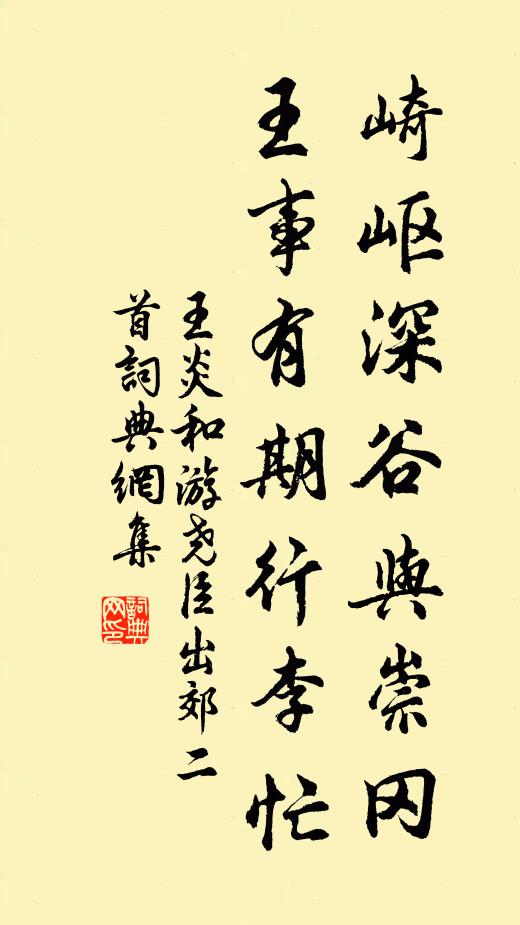 崎岖深谷與崇冈
王事有期行李忙
王炎和游尧臣出郊二
首詞典網集
詞典网印